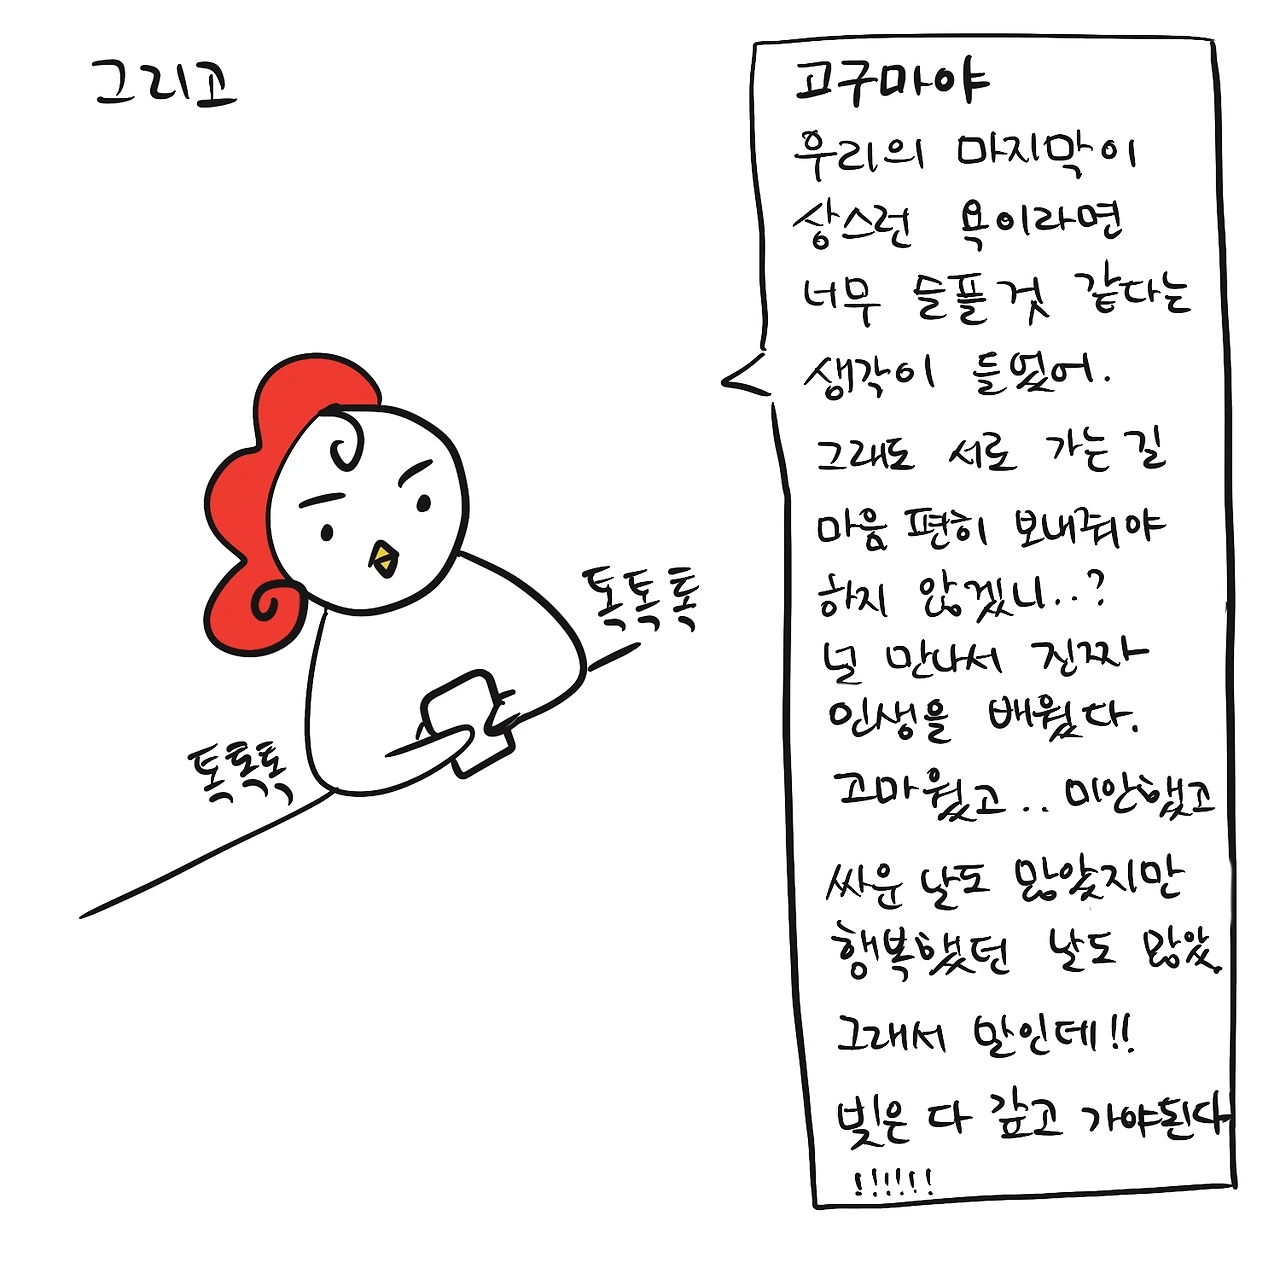 그리고
고구마야
우리의 마지막이
상스런 욕이라면
너무 슬플것 같다는
생각이 들었어.
그래도 서로 가는길
마음 편히 보내줘야
하지 않겠니..?
널 만나서 진짜
인생을 배웠다.
고마웠고.. 미안했고
싸운 날도 많았지만
행복했던 날도 많았.
그래서 말인데!!
빚은 다 갚고 가야된다
!!!!!!
톡톡톡
톡톡톡